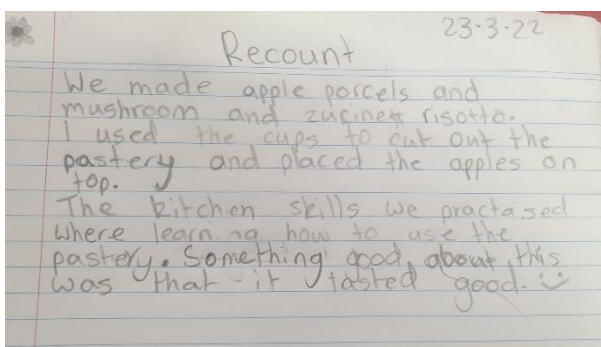 23-3-22
Recount
We made apple porcels and
mushroom and zucinett risotto.
I used the cups to cut out the
pastery and placed the apples on
top.
The kitchen skills we practaised
where learning how to use the
pastery. Something good about this
was that it tasted good.